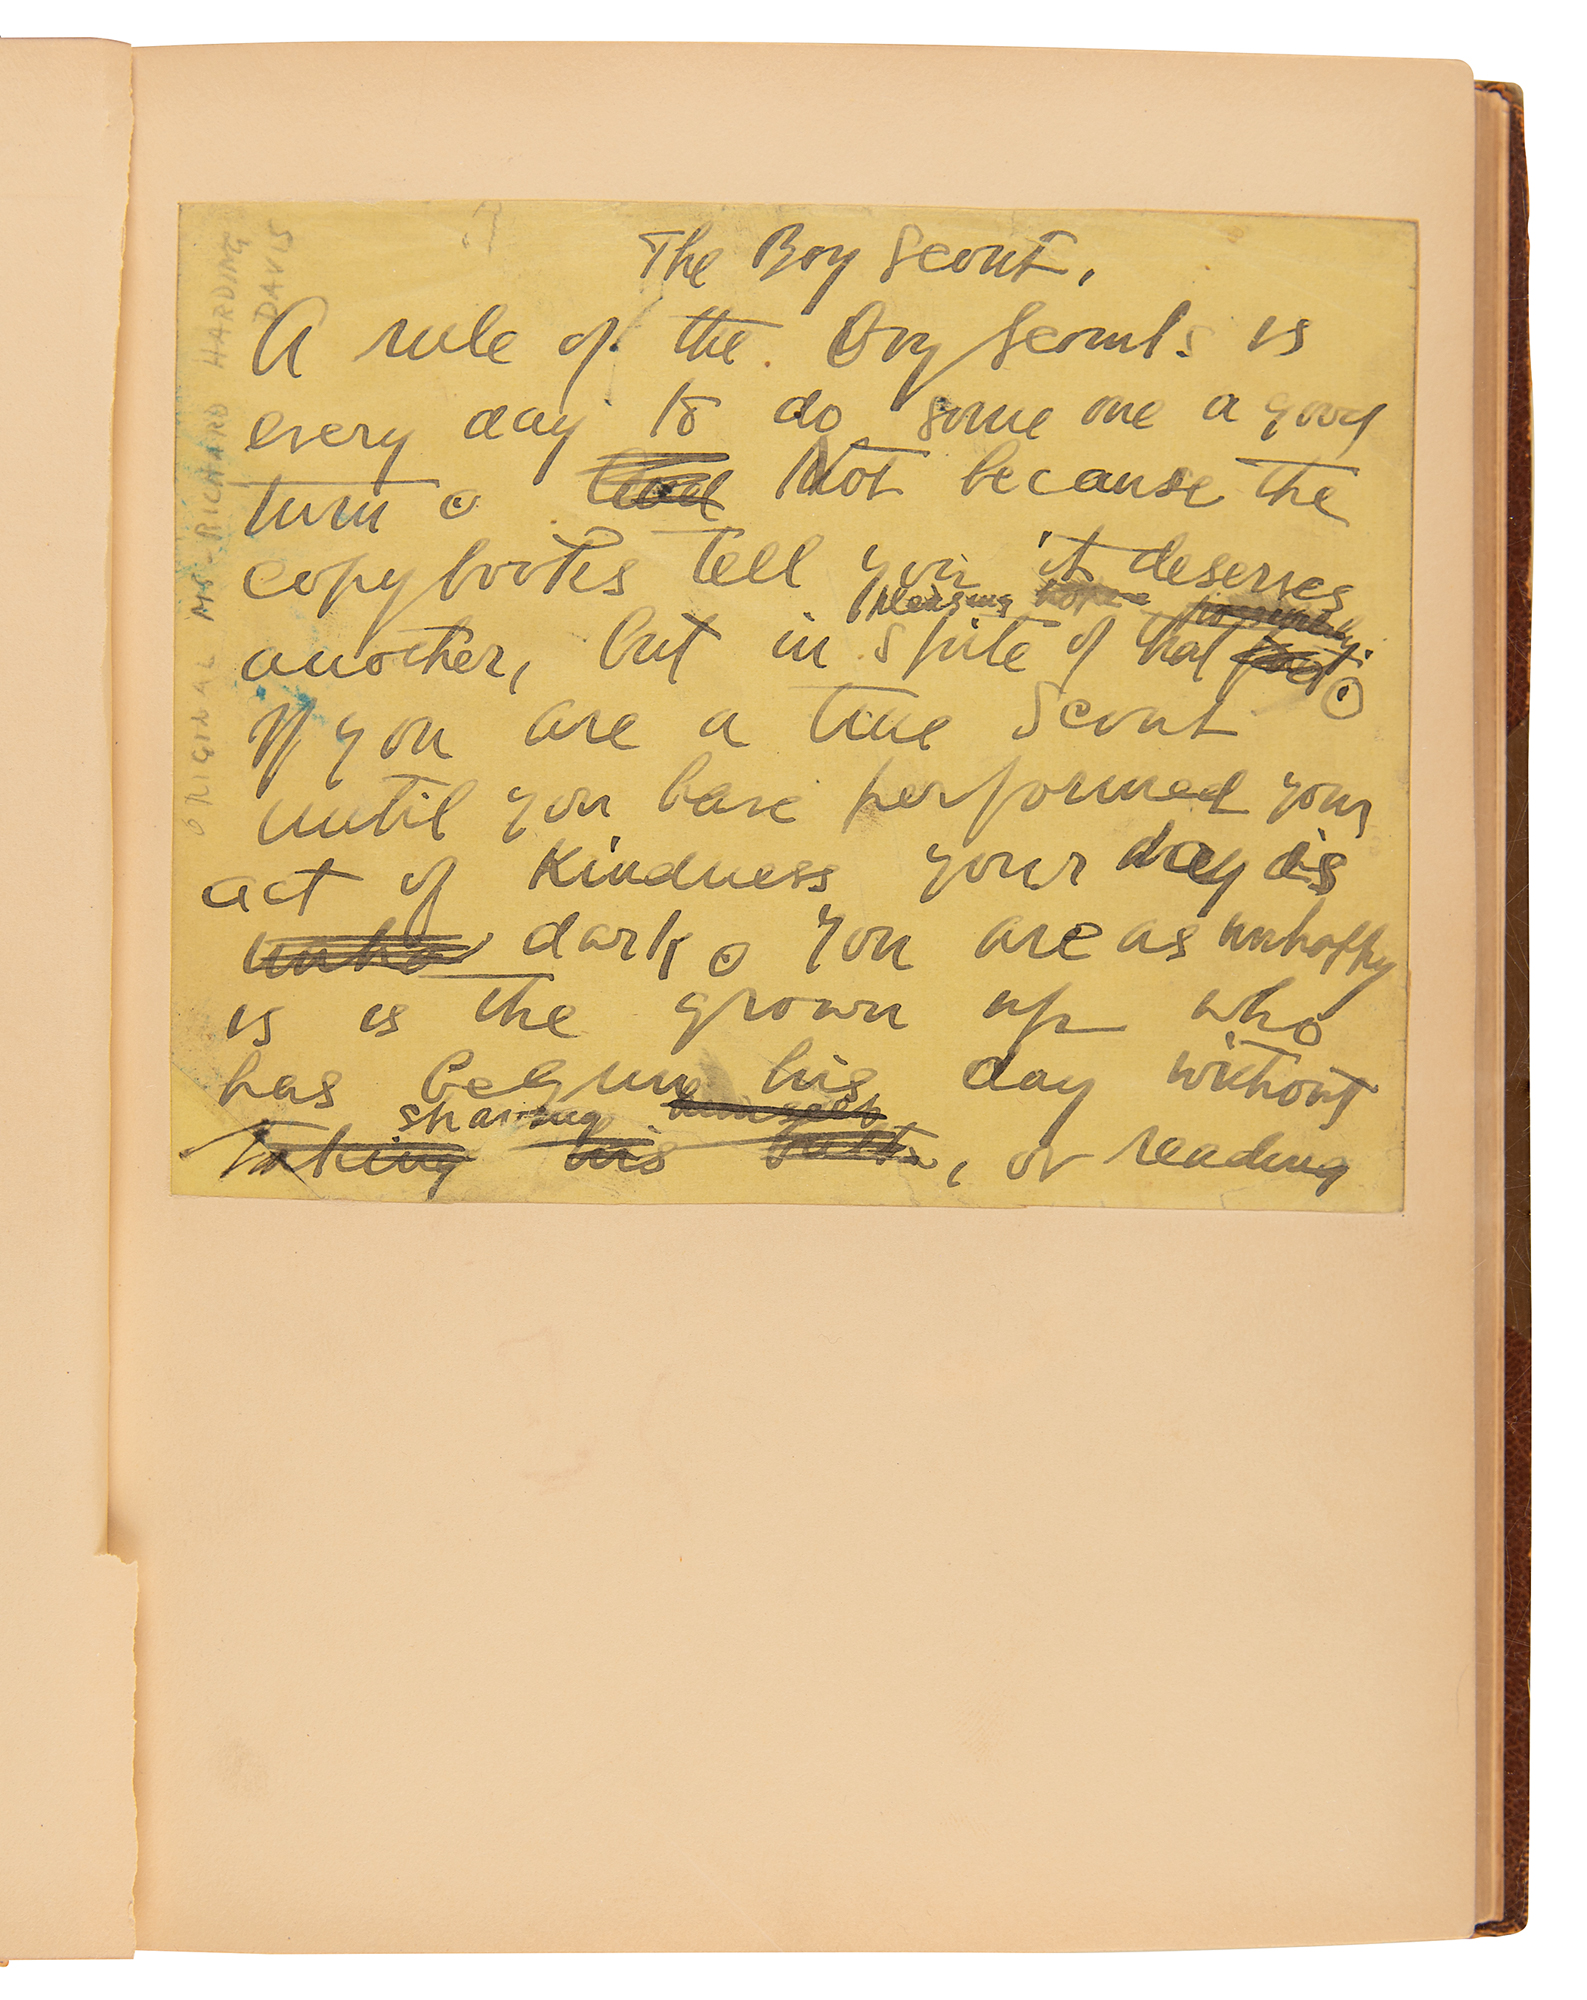 The Boy Scout.
A rule of the Boy Scouts is
every day to do some one a good
turn. Not because the
copybooks tell you it deserves
pleasing
another, but in spite of that
If you are a true Scout
until you have performed your
act of kindness your day is
dark. You are as unhappy
is is the grown up who
has begun his day without
shaving himself
taking his bath, or reading
ORIGINAL MS - RICHARD HARDING
DAVIS